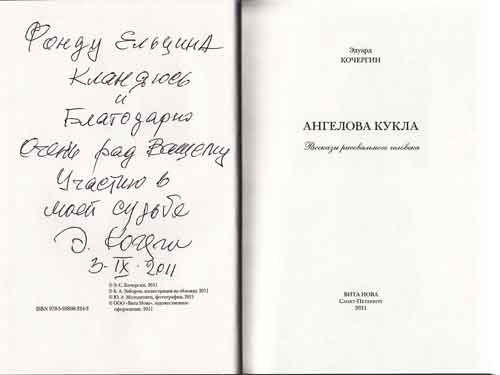 Фонду Ельцина
Кланяюсь
и
Благодарю
Очень рад Вашему
Участию в
моей судьбе
Э. Кочергин
3-IX-2011
© Э. С. Кочергин, 2011
© Ю. А. Молодковец, фотографии, 2011
© ООО «Вита Нова», художественное
оформление, 2011
Эдуард
КОЧЕРГИН
АНГЕЛОВА КУКЛА
Рассказы рисовального человека
ВИТА НОВА
Санкт-Петербург
2011